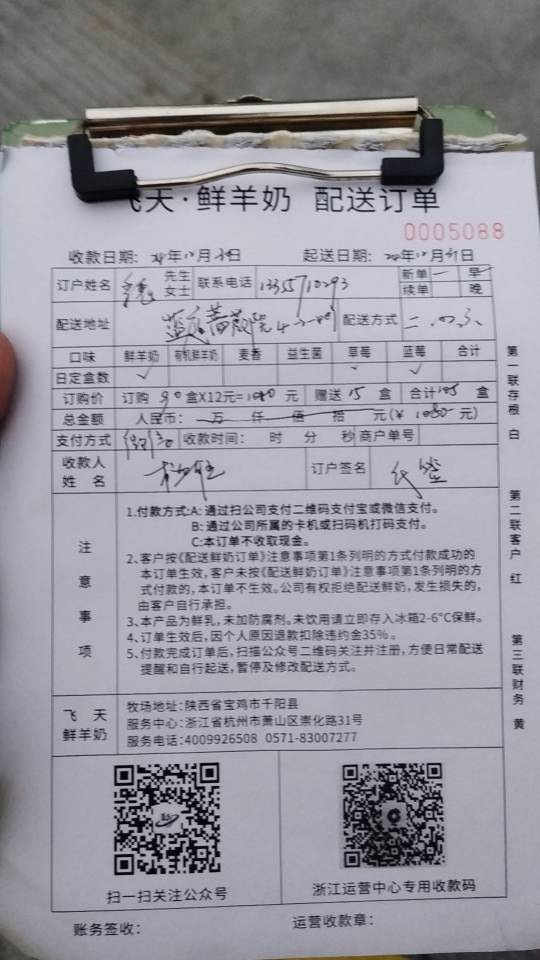 飞天·鲜羊奶 配送订单
0005088
收款日期： 年12月 日 起送日期： 年12月31日
订户姓名 先生 女士 联系电话 13357102293 新单 早
续单 晚
配送地址 蓝庭蔷薇苑 配送方式 二.四.六
口味 鲜羊奶 有机鲜羊奶 麦香 益生菌 草莓 蓝莓 合计
日定盒数 ✓ ✓ ✓
订购价 订购 90 盒X12元=1080 元 赠送 15 盒 合计105 盒
总金额 人民币： 万 仟 佰 拾 元(￥ 1080 元)
支付方式 收款时间： 时 分 秒 商户单号
收款人姓名 订户签名 代签
注意事项
1.付款方式:A: 通过扫公司支付二维码支付宝或微信支付。
B: 通过公司所属的卡机或扫码机打码支付。
C:本订单不收取现金。
2、客户按《配送鲜奶订单》注意事项第1条列明的方式付款成功的
本订单生效，客户未按《配送鲜奶订单》注意事项第1条列明的方
式付款的，本订单不生效。公司有权拒绝配送鲜奶，发生损失的，
由客户自行承担。
3、本产品为鲜乳，未加防腐剂。未饮用请立即存入冰箱2-6°C保鲜。
4、订单生效后，因个人原因退款扣除违约金35%。
5、付款完成订单后，扫描公众号二维码关注并注册，方便日常配送
提醒和自行起送，暂停及修改配送方式。
飞天鲜羊奶
牧场地址：陕西省宝鸡市千阳县
服务中心：浙江省杭州市萧山区崇化路31号
服务电话：4009926508 0571-83007277
扫一扫关注公众号 浙江运营中心专用收款码
账务签收： 运营收款章：
第一联存根 白
第二联客户 红
第三联财务 黄